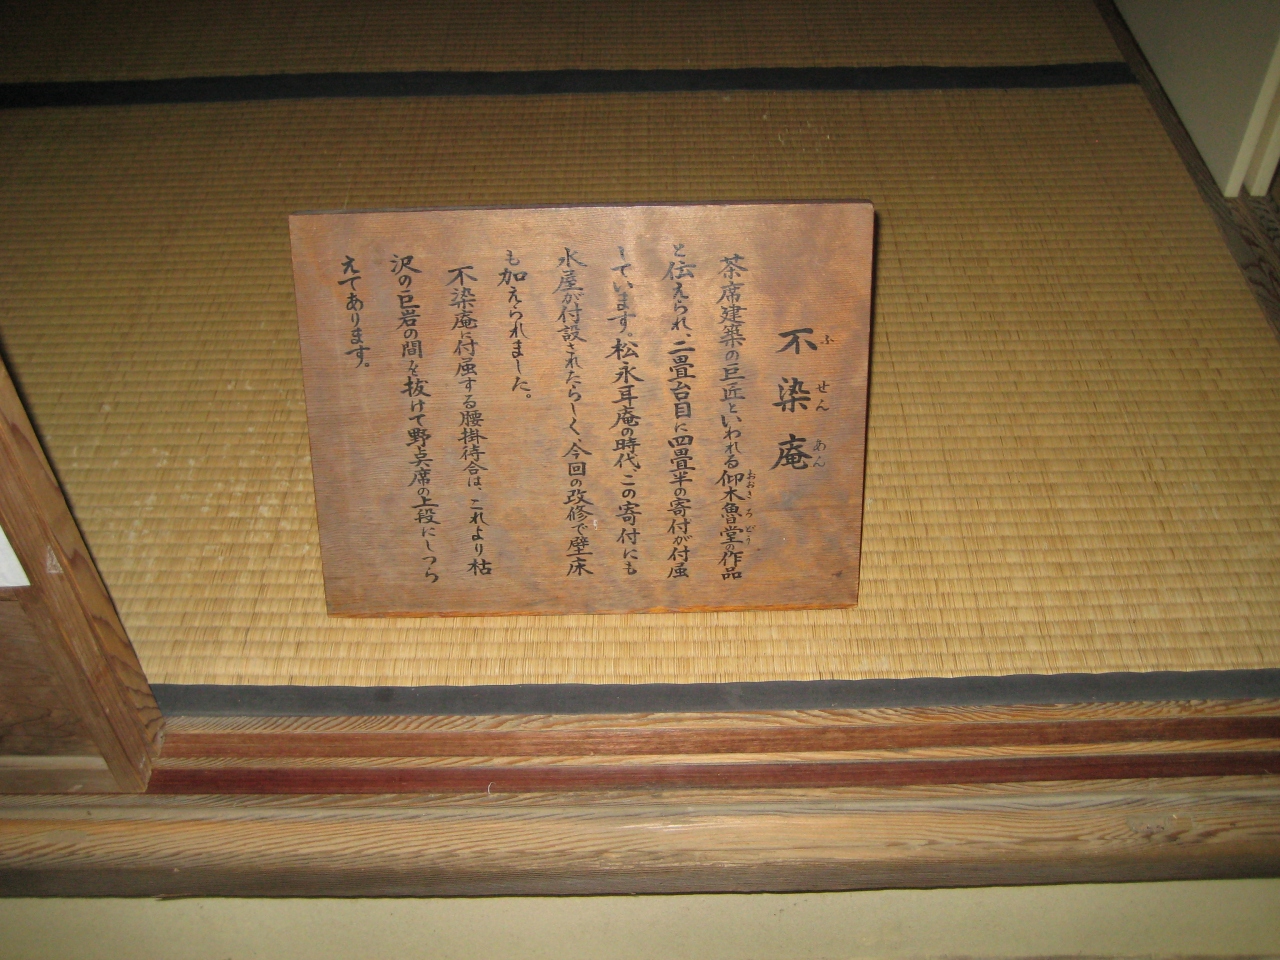 不染庵
ふせんあん
茶席建築の巨匠といわれる仰木魯堂の作品
おおきろどう
と伝えられ、二畳台目に四畳半の寄付が付属
しています。松永耳庵の時代、この寄付にも
水屋が付設されたらしく、今回の改修で壁床
も加えられました。
不染庵に付属する腰掛待合は、これより枯
沢の巨岩の間を抜けて野点席の上段にしつら
えてあります。